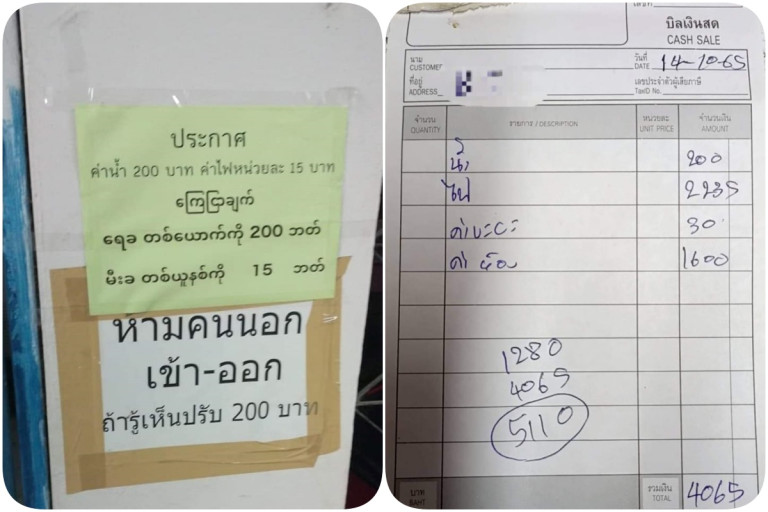 ประกาศ
ค่าน้ำ 200 บาท ค่าไฟหน่วยละ 15 บาท
ကြေငြာချက်
ရေခ တစ်ယောက်ကို 200 ဘတ်
မီးခ တစ်ယူနစ်ကို 15 ဘတ်
ห้ามคนนอก
เข้า-ออก
ถ้ารู้เห็นปรับ 200 บาท
บิลเงินสด
CASH SALE
นาม
CUSTOMER
วันที่
DATE 14-10-65
ที่อยู่
ADDRESS
เลขประจำตัวผู้เสียภาษี
TaxID No.
จำนวน รายการ / DESCRIPTION หน่วยละ จำนวนเงิน
QUANTITY UNIT PRICE AMOUNT
น้ำ 200
ไฟ 2235
30
ค่าห้อง 1600
1280
4065
5110
บาท รวมเงิน
BAHT TOTAL 4065